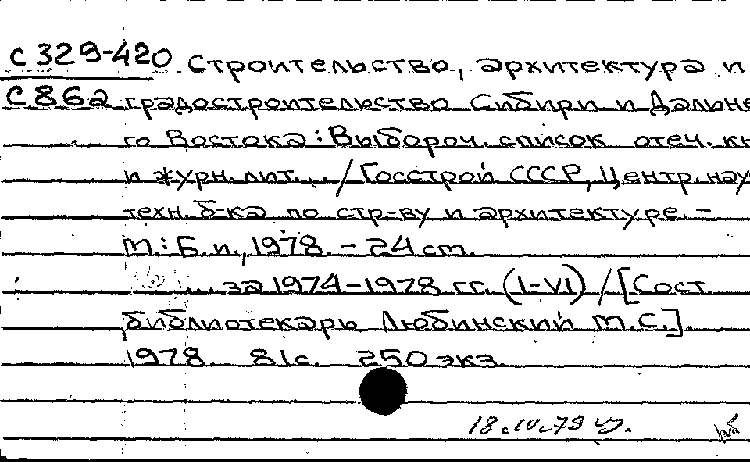 С 329-420 Строительство, архитектура и
С 862 градостроительство Сибири и Дальне
го Востока : Выбороч. список отеч. кн
и журн. лит... / Госстрой СССР, Центр. нау
техн. б-ка по стр-ву и архитектуре. –
М.: Б. и., 1978. – 24 см.
... за 1974-1978 гг. (I-VI) / [Сост.
библиотекарь Любинский М.С.].
1978. 81с. 250 экз.
18.IV.79